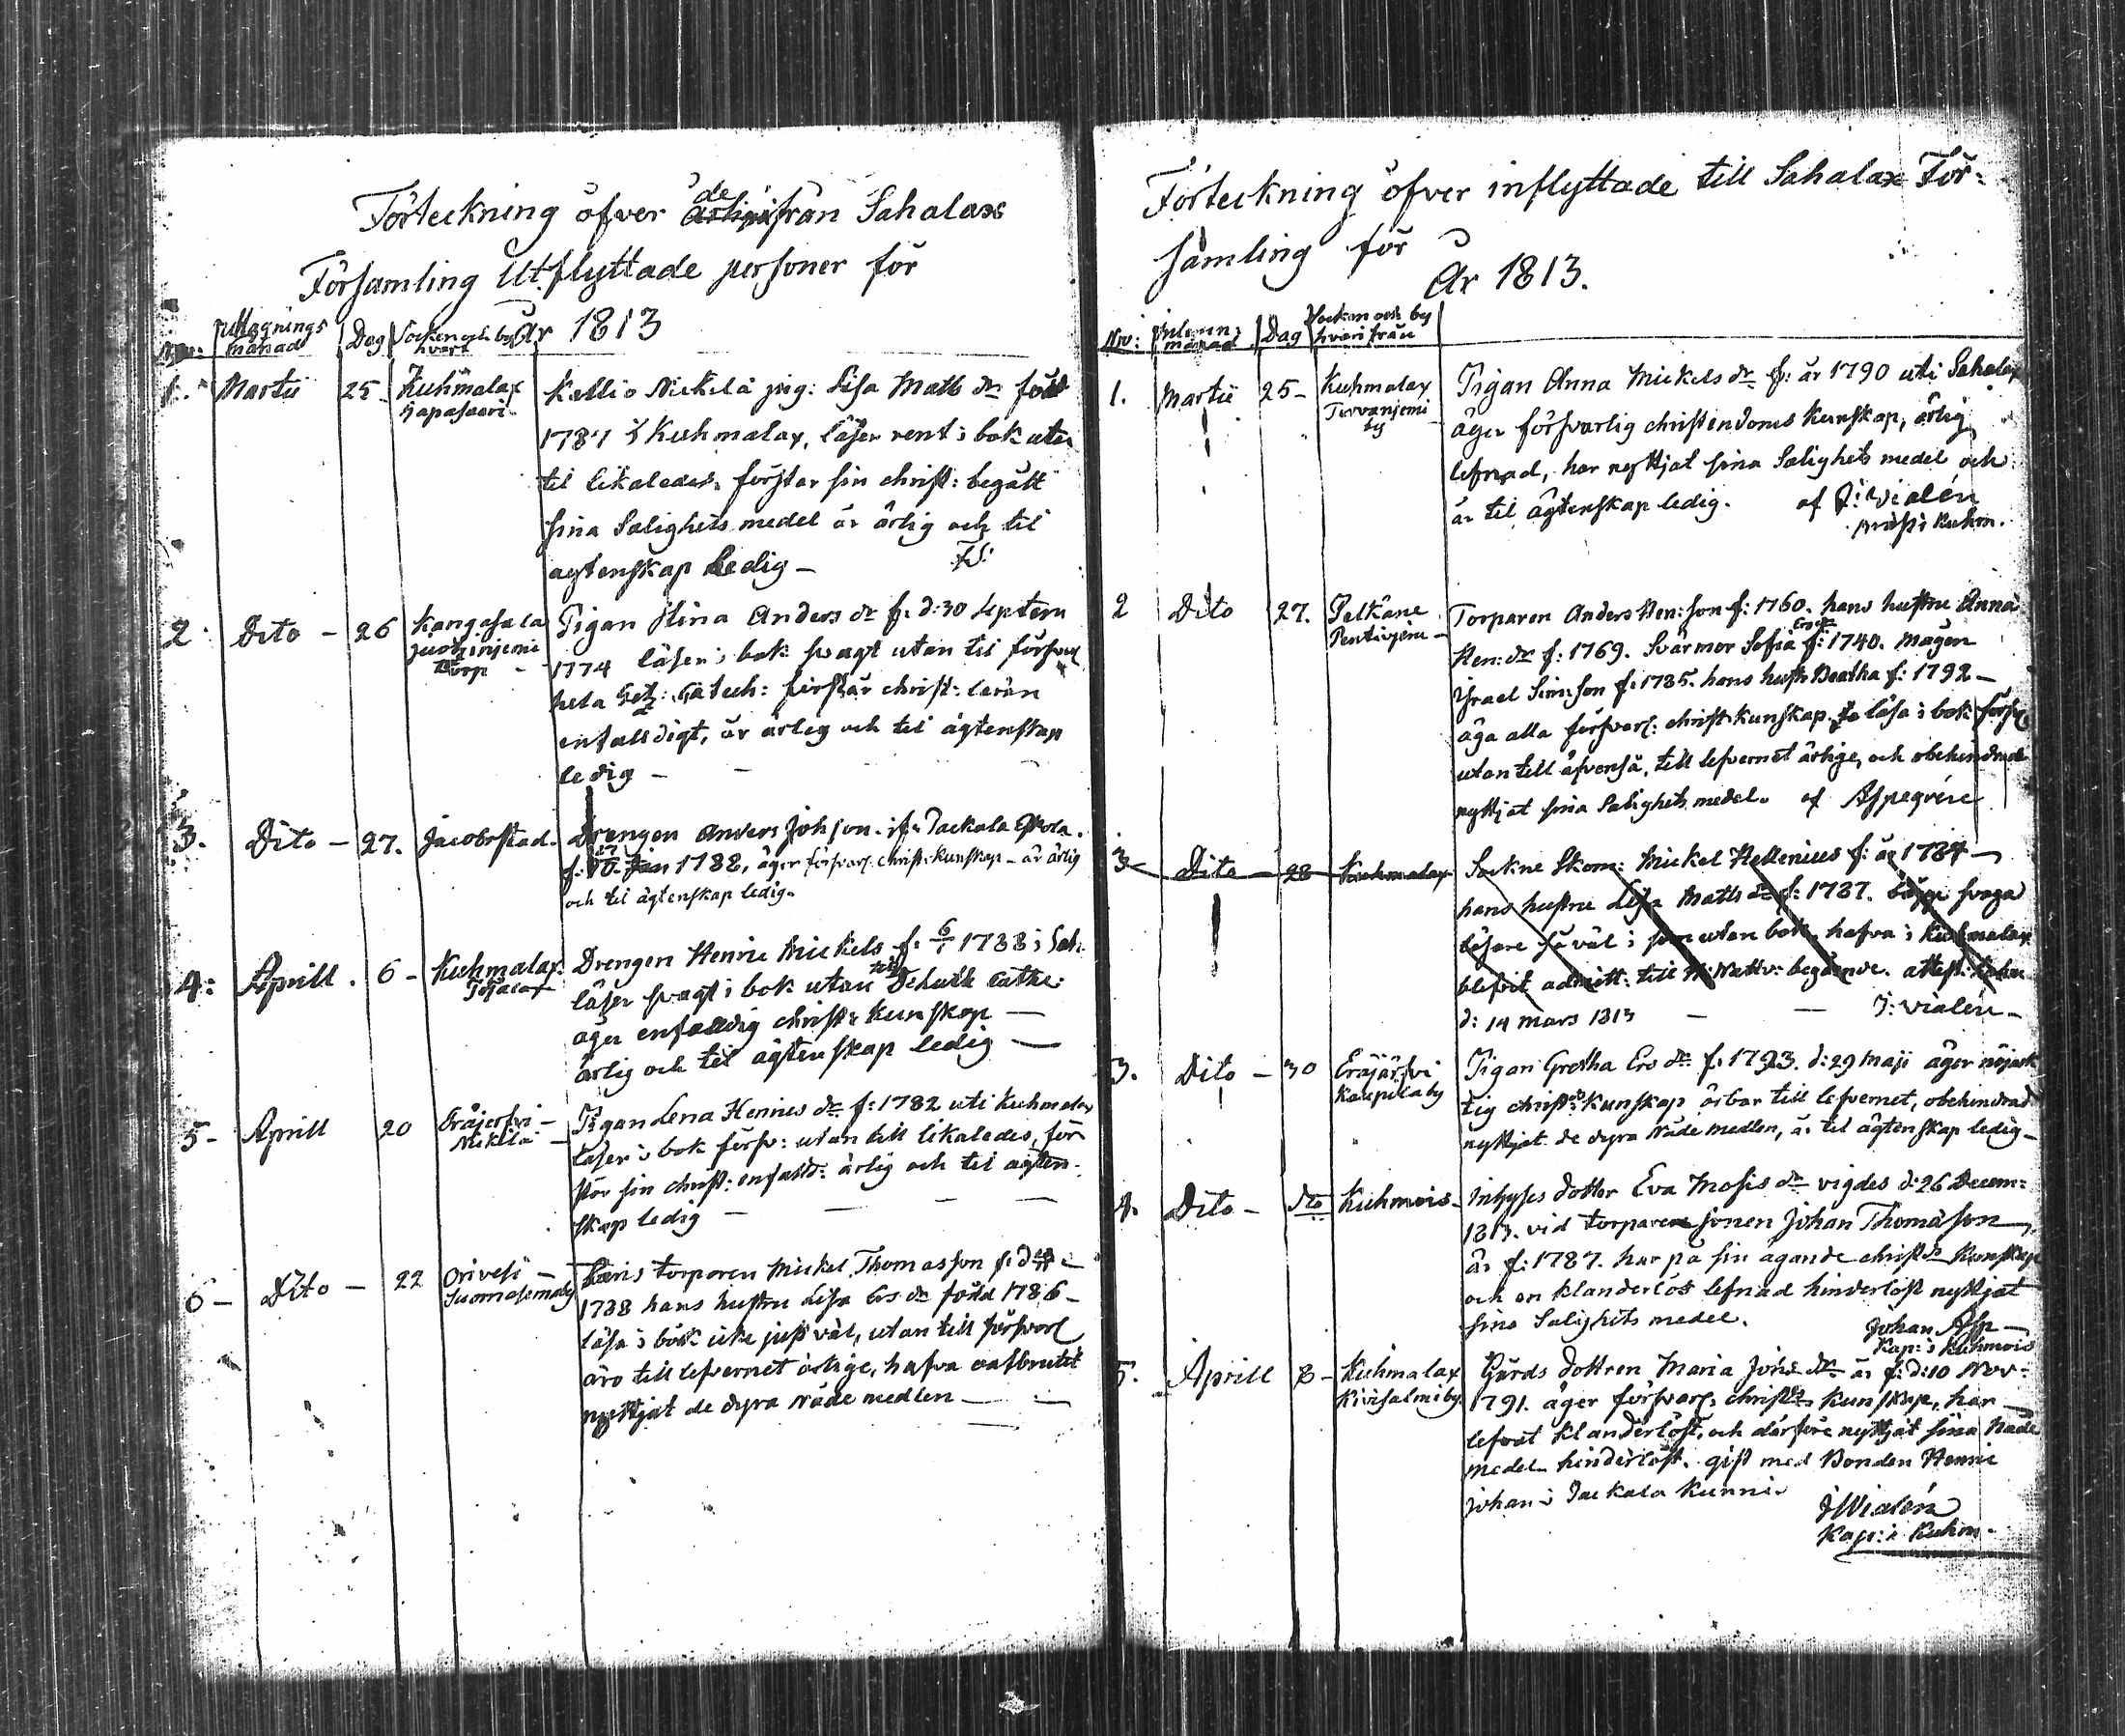 Förteckning öfver de från Sahalax
Församling Utflyttade personer för
År 1813
Uttagnings månad Dag Socken och by hvart
1. Martii 25. Kuhmalax Kellio Nickilä pig: Lisa Matts dr född
Papasaari 1787 i Kuhmalax, läser rent i bok utan
til likaledes, förstår sin christ: begått
sina Salighets medel är ärlig och til
ägtenskap Ledig —
2. Dito — 26 Kangasala Pigan Stina Anders dr f. d: 30 Septem
torp 1774 läser i bok svagt utan til
hela Catech: förstår christ: läran
enfalldigt, är ärlig och til ägtenskap
ledig —
3. Dito — 27. Jacobstad. Drengen Anders Joh:son ifr. Jackala
f: 1788, äger försvarl. christ: kunskap — är ärlig
och til ägtenskap ledig.
4: Aprill. 6 — Kuhmalax Drengen Henric Mickels f. 6/1 1788 i Sah.
läser svagt i bok utan till
äger enfalldig christ: kunskap —
ärlig och til ägtenskap ledig —
5 — Aprill 20 Eräjerfvi — Pigan Lena Henrics dr f: 1782 uti Kuhmalax
Nikkilä — läser i bok försv: utan till likaledes, för
står sin christ: enfald: ärlig och til ägten-
skap ledig —
6 — Dito — 22 Orivesi — torparen Mickel Thomasson f:
Suomasemaby 1788 hans hustru Lisa Ers dr född 1786 —
läsa i bok icke just väl, utan till försvarl
äro till lefvernet ärlige, hafva oafbrutit
nyttjat de dyra Nåde medlen —
Förteckning öfver inflyttade till Sahalax För-
samling för
År 1813.
Nro: månad Dag Socken och by hvarifrån
1. Martii 25 — Kuhmalax Pigan Anna Mickels dr f: år 1790 uti Sahalax
by äger försvarlig christendoms kunskap, ärlig
lefnad, har nyttjat sina Salighets medel och
är til ägtenskap ledig. af J: Vialén
i Kuhm.
2 Dito 27. Pelkäne Torparen Anders Hen:son f: 1760. hans hustru Anna
Hen: dr f: 1769. Svärmor Sofia Ers dr f: 1740. Mågen
Israel Sim:son f: 1785. hans hustr Beatha f: 1792 —
äga alla försvarl: christ. kunskap. läsa i bok försv
utan till äfvenså, till lefvernet ärlige, och obehindrade
nyttjat sina Salighets medel. af Aspegrén
3 Dito 28 Kuhmalax Sockne Skom: Mickel Hellenius f: år 1784 —
hans hustru Lisa Matts dr f: 1787. bägge svaga
läsare så väl i som utan bok. hafva i Kuhmalax
blefvit admitt: till H: Nattv: begående. attest: Kuhm
d: 14 Mars 1813 — — J: Vialén —
3. Dito — 30 Eräjärfvi Pigan Gretha Ers dr f: 1793. d: 29 Maji äger nöjak
Kaupilaby tig christ: kunskap ärbar till lefvernet, obehindrad
nyttjat de dyra Nåde medlen, är til ägtenskap ledig —
4. Dito — dto Kuhmois — Inhyses dotter Eva Mosis dr vigdes d: 26 Decem:
1813. vid torpare sonen Johan Thomasson,
är f: 1787. har på sin ägande christds kunskap
och en klanderlös lefnad hinderlöst nyttjat
sina Salighets medel. Johan Asp —
Kap: i Kuhmois
5. Aprill 8 — Kuhmalax Gårds dottren Maria Johs dr är f: d: 10 Nov:
Kivisalmiby. 1791. äger försvarl. christ: kunskap, har
lefvat klanderlöst, och därföre nyttjat sina Nåde
medel hinderlöst. gift med Bonden Henric
Johan i Jackala Kunni.
J Vialén
Kap: i Kuhm.